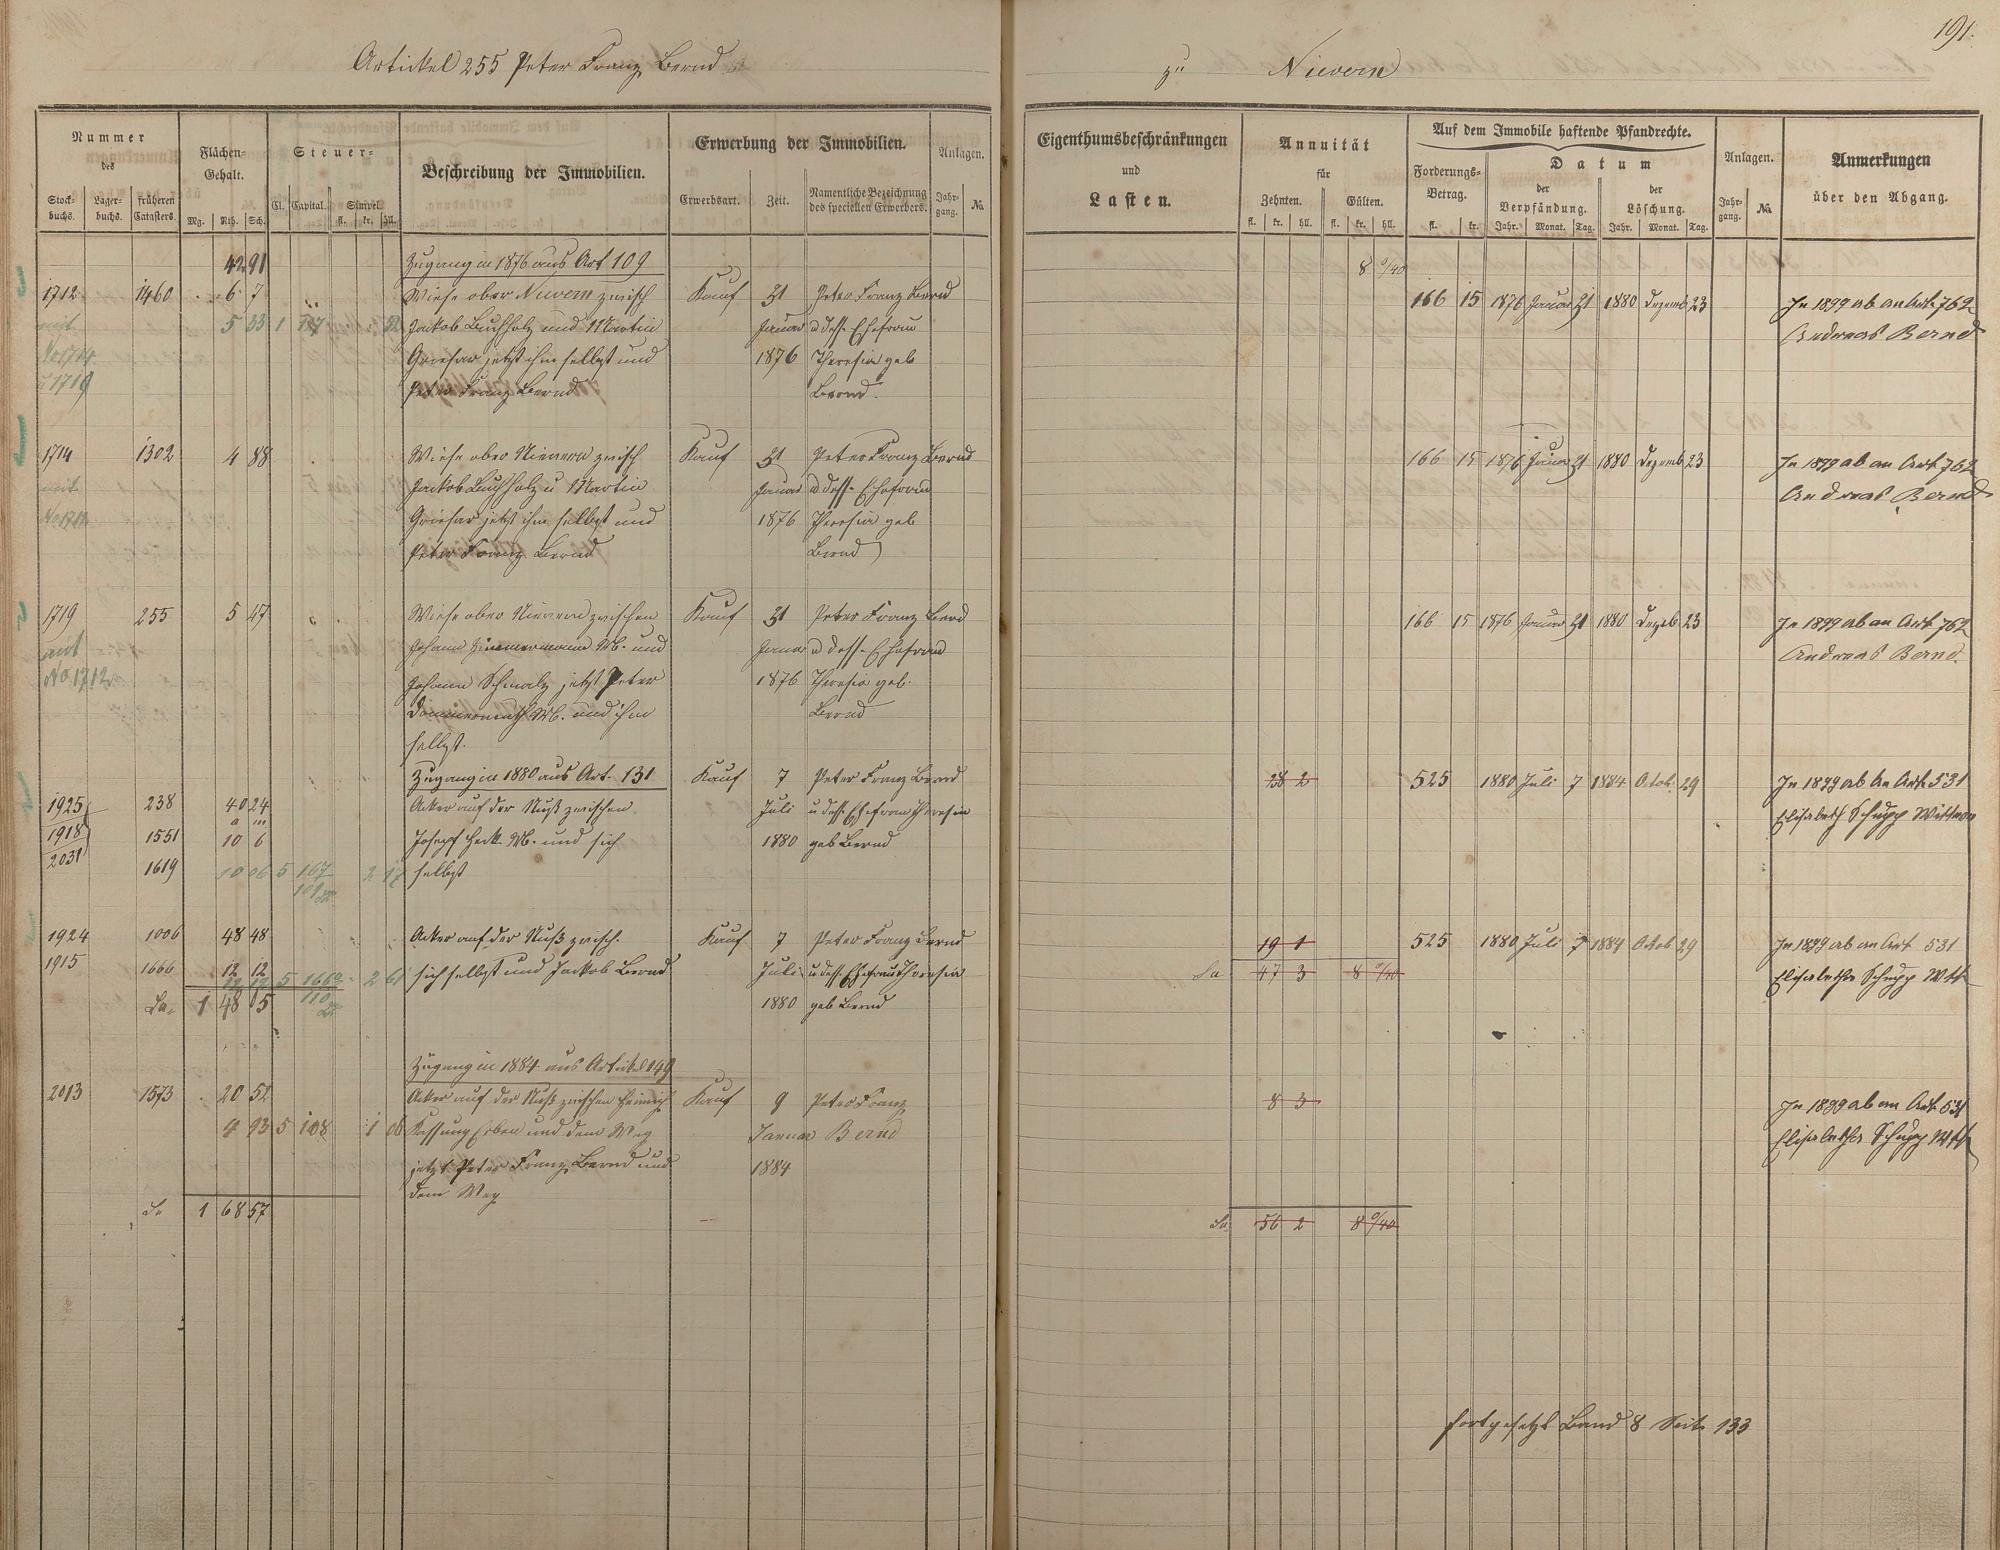 191.
Artickel 255 Peter Franz Bernd
zu Nievern
Nummer
des
Stock-
buchs.
Lager-
buchs.
früheren
Catasters.
Flächen-
Gehalt.
Mg. Rth. Sch.
Steuer-
Cl. Capital. Simpel.
fl. kr. hll.
Beschreibung der Immobilien.
Erwerbung der Immobilien.
Erwerbsart. Zeit.
Namentliche Bezeichnung
des speciellen Erwerbers.
Anlagen.
Jahr-
gang.
№
Eigenthumsbeschränkungen
und
Lasten.
Annuität
für
Zehnten. Gülten.
fl. kr. hll. fl. kr. hll.
Auf dem Immobile haftende Pfandrechte.
Forderungs-
Betrag.
fl. kr.
Datum
der
Verpfändung.
Jahr. Monat. Tag.
der
Löschung.
Jahr. Monat. Tag.
Anlagen.
Jahr-
gang.
№
Anmerkungen
über den Abgang.
42 91 Zugang in 1876 aus Art 109
8 0/40
1712 1460 6 7 Wiese ober Nievern zwisch Kauf 31 Peter Franz Bernd 166 15 1876 Januar 31 1880 Dezemb 23 In 1899 ab an Art. 762
mit 5 33 1 Jackob Buchholz und Martin Januar u dess. Ehefrau Andreas Bernd
No 1714 Griesar jetzt ihm selbst und 1876 Theresia geb
u 1719 Peter Franz Bernd Bernd.
1714 1302 4 88 Wiese ober Nievern zwisch Kauf 31 Peter Franz Bernd 166 15 1876 Januar 31 1880 Dezemb 23 In 1899 ab an Art. 762
mit Jackob Buchholz u Martin Januar u dess. Ehefrau Andreas Bernd
No 1712 Griesar jetzt ihm selbst und 1876 Theresia geb
Peter Franz Bernd Bernd
1719 255 5 47 Wiese ober Nievern zwischen Kauf 31 Peter Franz Bernd 166 15 1876 Januar 31 1880 Dezeb 23 In 1899 ab an Art. 762
mit Johann Zimmermann M. und Januar u dess. Ehefrau Andreas Bernd.
No 1712 Johann Schmalz jetzt Peter 1876 Theresia geb.
Dommermuth M. und ihm Bernd
selbst.
Zugang in 1880 aus Art. 131 Kauf 7 Peter Franz Bernd 28 2 525 1880 Juli 7 1884 Octob. 29 In 1899 ab an Art. 531
1925 238 40 24 Acker auf der Nuß zwischen Juli u dess. Ehefrau Theresia Elisabeth Schupp Wittwe
a m
1918 1551 10 6 Josepf Heck M. und sich 1880 geb Bernd
2031 1619 10 06 5 167 2 17 selbst
109
1924 1006 48 48 Acker auf der Nuß zwisch. Kauf 7 Peter Franz Bernd 19 1 525 1880 Juli 7 1884 Octob 29 In 1899 ab an Art 531
1915 1666 12 12 sich selbst und Jackob Bernd Juli u dess. Ehefrau Theresia Sa 47 3 8 0/40 Elisabetha Schupp Wtt
12 12 5 166 2 61
Sa. 1 48 05 110 1880 geb Bernd
Zugang in 1884 aus Artickel 149
2013 1573 20 52 Acker auf der Nuß zwischen Heinrich Kauf 9 Peter Franz 8 3 In 1899 ab an Art. 531
4 93 5 108 1 06 Erben und dem Weg Januar Bernd Elisabetha Schupp Wtt
jetzt Peter Franz Bernd und 1884
dem Weg
Sa 1 68 57 Sa. 56 2 8 0/40
fortgesetzt Band 8 Seite 133